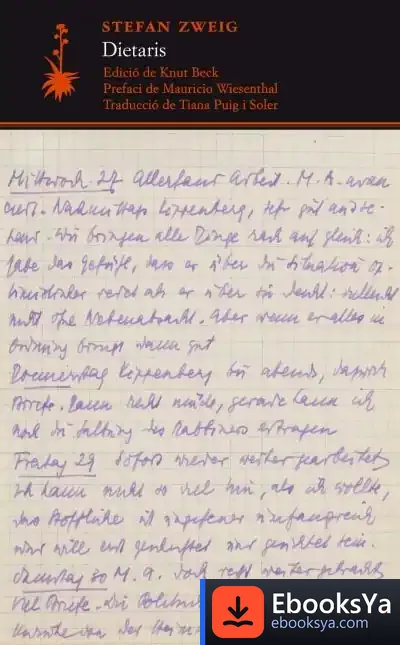 STEFAN ZWEIG
Dietaris
Edició de Knut Beck
Prefaci de Mauricio Wiesenthal
Traducció de Tiana Puig i Soler
Mittwoch 27 Allerhand Arbeit. M. A.
Nachmittags Kippenberg, sehr gut
Wir bringen alle Dinge nach auf gleich: ich
habe das Gefühl, dass er über die Situation
als er über sie denkt: vielleicht
nicht ohne Nebenabsicht. Aber wenn er alles in
Ordnung bringt dann gut
Donnerstag Kippenberg bis abends, dazwischen
Briefe. Dann recht müde, gerade kann ich
noch die des Rabbiners ertragen
Freitag 29 Sofort wieder weiter gearbeitet
ich kann nicht so viel tun, als ich wollte,
das ist ungeheuer umfangreich
und will erst und gesichtet sein.
Samstag 30 M. A. doch recht weiter gebracht
Viel Briefe. Die
EbooksYa
ebooksya.com